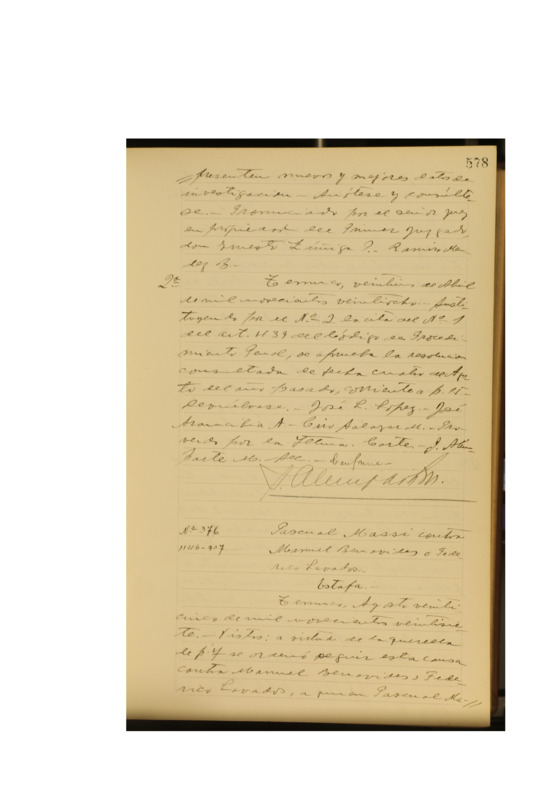 578
presenten nuevos y mejores datos la
investigacion - Anótese y consúlte
se. - Pronunciado por el señor juez
en propiedad del Primer Juzgado,
don Ernesto Zúñiga
2ª Temuco, veintiuno de Abril
de mil novecientos veintiocho - Susti
tuyendo por el Nº 2 la cita del Nº 1
del art. del Código de Procedi
miento Penal, se aprueba la resolucion
consultada de fecha cuatro de Agos
to del año pasado, corriente a f.
Devuélvase. - José L. Lopez. - José
Arancibia A - Ciro Salazar M. - Pro
veido por la Iltma. Corte. - J. Alem
parte M. - Sec. - Conforme -
J. Alemparte M.
Nº 376 Pascual Massi contra
Manuel Benavides o Fede
rico Lavados.
Estafa. -
Temuco, Agosto veinti
cinco de mil novecientos veintisie
te. - Vistos: a virtud de la querella
de f. 4 se ordenó seguir esta causa
contra Manuel Benavides o Fede
rico Lavados, a quien Pascual Ma-//